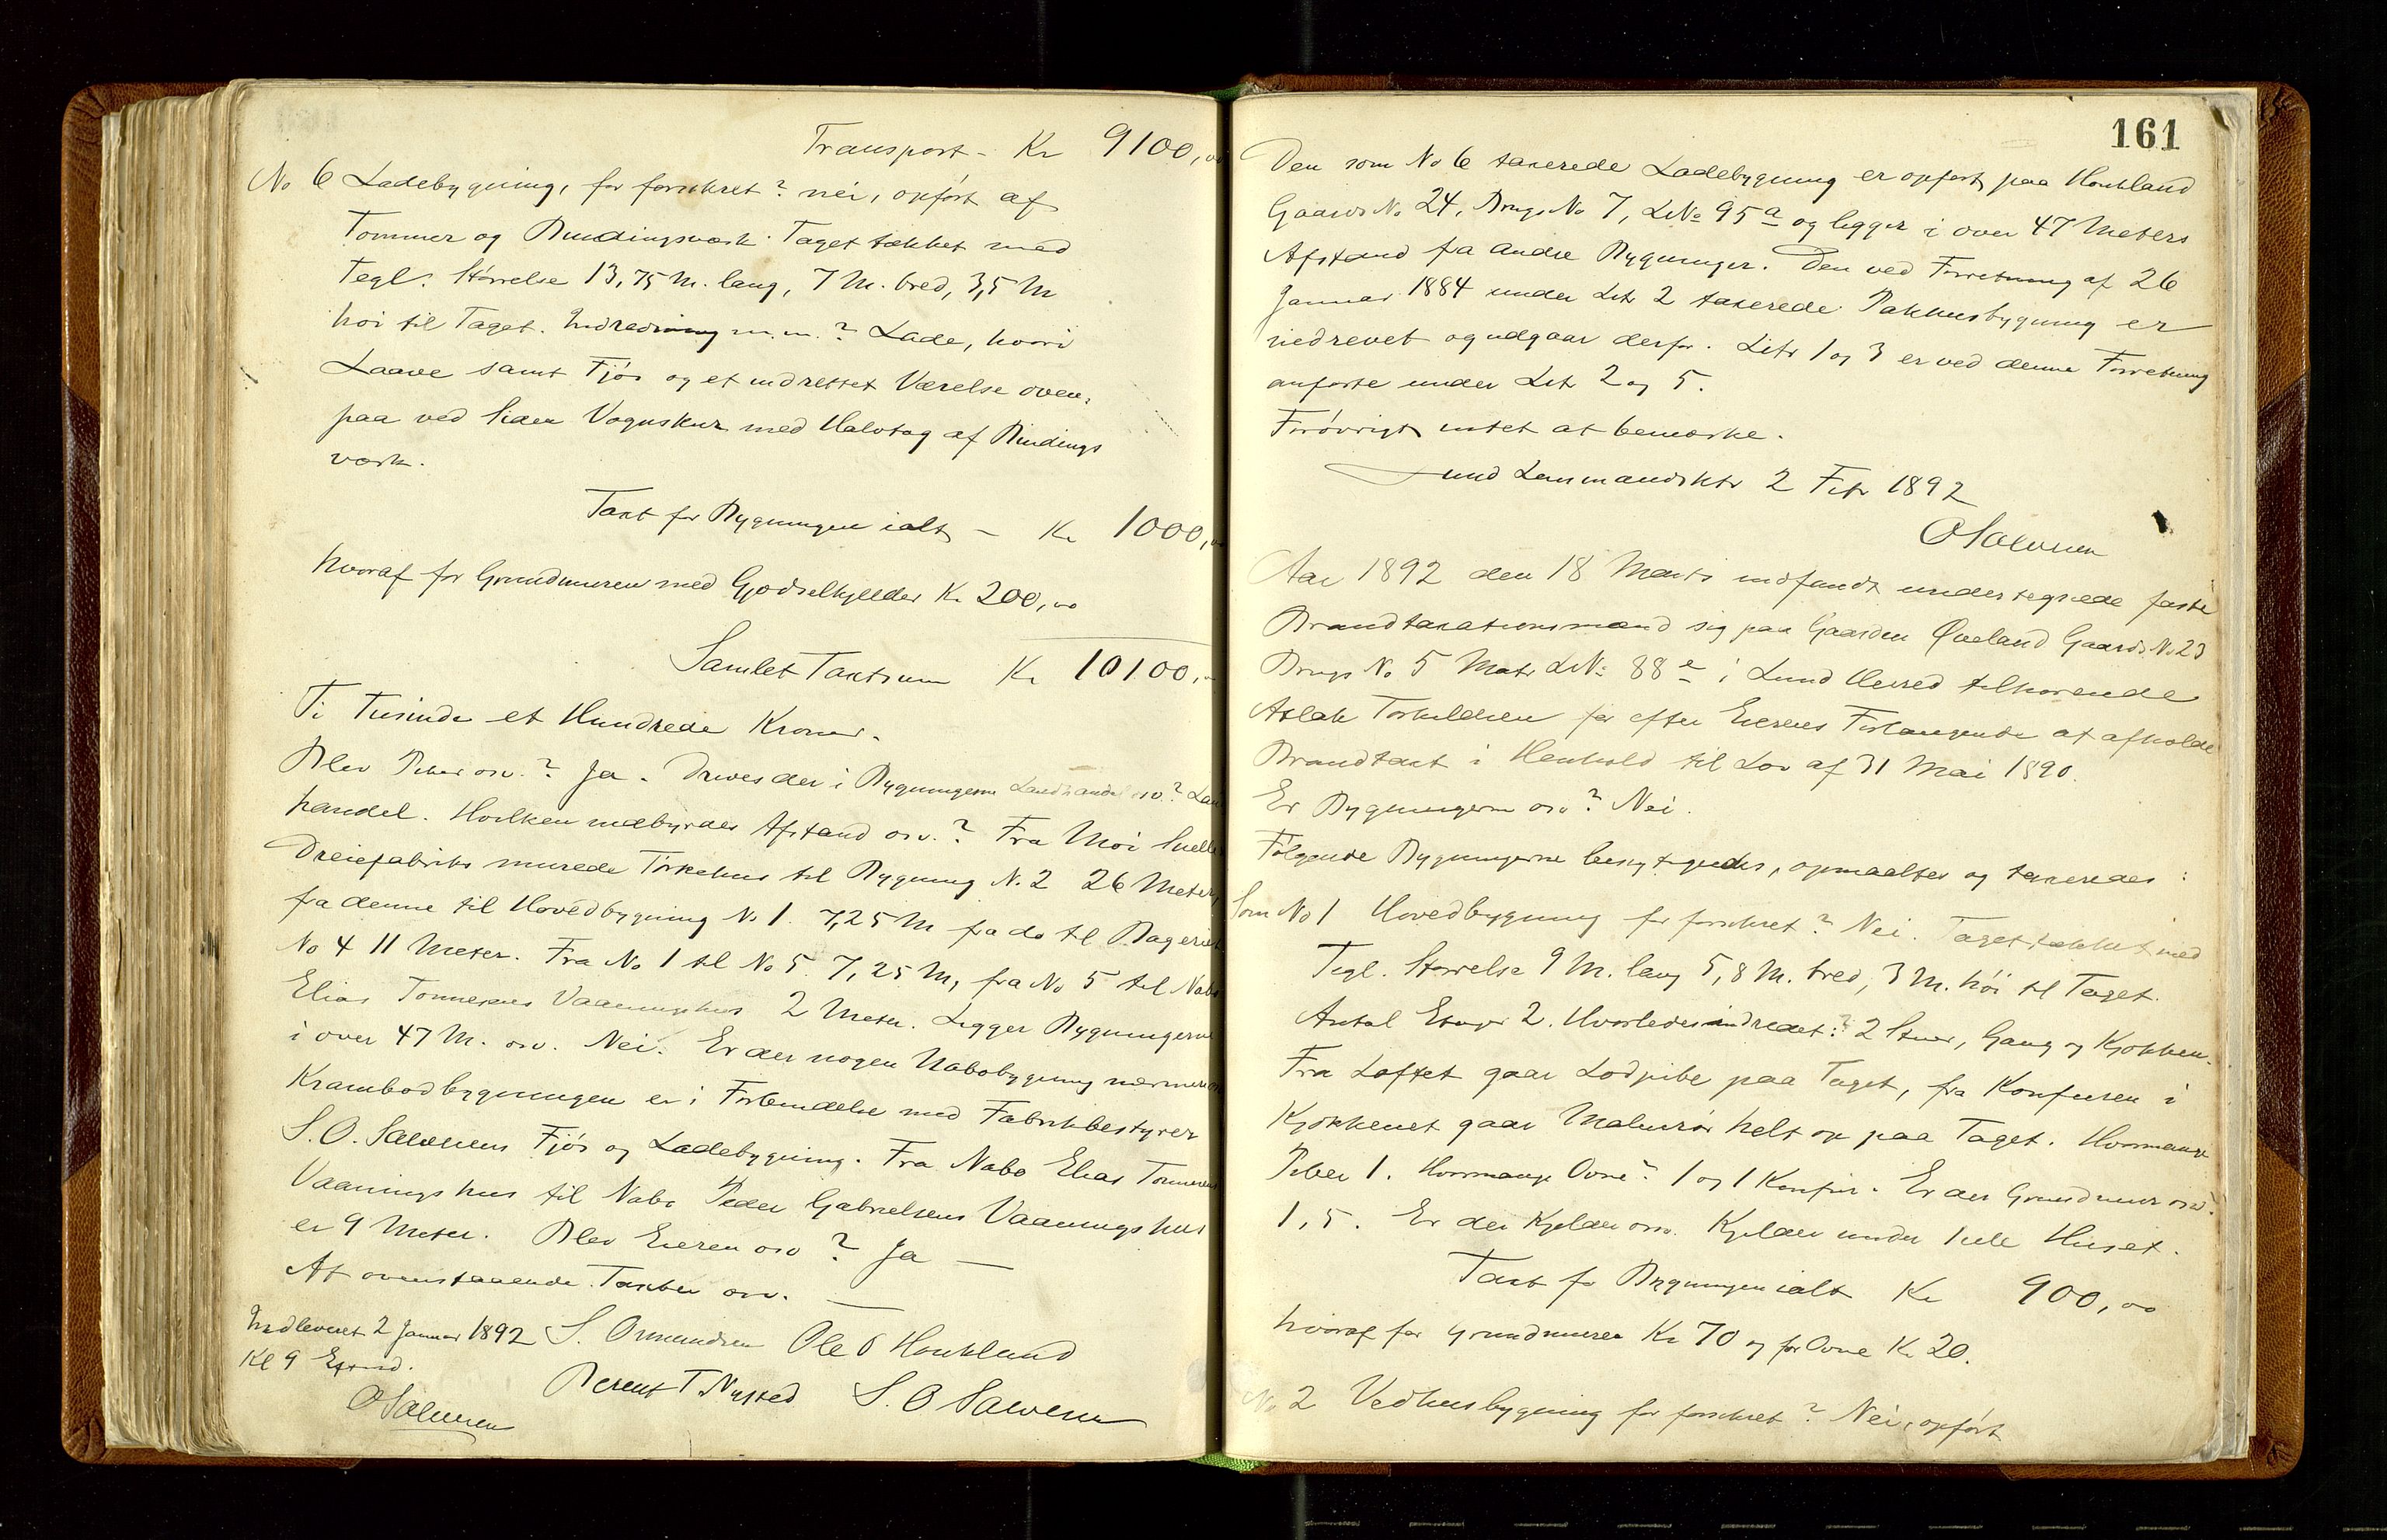 Transport - Kr 9100,00
No 6 Ladebygning, før forsikret? nei, opført af
Tømmer og Bindingsværk. Taget tækket med
Tegl. Størrelse 13,75 M. lang, 7 M. bred, 3,5 M
høi til Taget. Indredning m.m.? Lade, hvori
Laave samt Fjøs og et indrettet Værelse oven-
paa ved Siden Vognskur med Halvtag af Bindings
værk.
Taxt for Bygningen ialt - Kr 1000,
hvoraf for Grundmuren med Gjødselkjelder Kr 200,00
Samlet Taxtsum Kr 10100,
Ti Tusinde et Hundrede Kroner.
Blev Piber osv.? Ja. Drives der i Bygningerne Landhandel osv? Lan
handel. Hvilken indbyrdes Afstand osv.? Fra Moi
Dreiefabriks murede Tørkehus til Bygning N. 2 26 Meter,
fra denne til Hovedbygning No 1. 7,25 M fra do til Bageriet
No 4 11 Meter. Fra No 1 til No 5. 7,25 M, fra No 5 til Nabo
Elias Tonnesens Vaaningshus 2 Meter. Ligger Bygningerne
i over 47 M. osv. Nei. Er der nogen Nabobygning nærmere
Krambodbygningen er i Forbindelse med Fabrikbestyrer
S. O. Salvesens Fjøs og Ladebygning. Fra Nabo Elias Tonnesens
Vaaningshus til Nabo Peder Gabrielsens Vaaningshus
er 9 Meter. Blev Eieren osv? Ja —
At ovenstaaende Taxter osv. —
Indleveret 2 Januar 1892 S. Omundsen Ole O Haukland
Kl 9 Efterm.
Berent T. Nysted S. O Salvesen
OSalvesen
161
Den som No 6 taxerede Ladebygning er opført paa Haukland
Gaards No 24, Brugs No 7, LNo 95a og ligger i over 47 Meters
Afstand fra andre Bygninger. Den ved Forretning af 26
Januar 1884 under Litr 2 taxerede Pakhusbygning er
nedrevet og udgaar derfor. Litr 1 og 3 er ved denne Forretning
anførte under Litr 2 og 5.
Forøvrigt intet at bemærke.
Lund Lensmandsktr 2 Febr 1892
OSalvesen
Aar 1892 den 18 Marts indfandt undertegnede faste
Brandtaxationsmænd sig paa Gaarden Øveland Gaards No 23
Brugs No 5 Matr LNo 88e i Lund Herred tilhørende
Aslak Torkildsen for efter Eierens Forlangende at afholde
Brandtaxt i Henhold til Lov af 31 Mai 1890.
Er Bygningerne osv? Nei.
Følgende Bygningerne besigtigedes, opmaaltes og taxeredes:
Som No 1 Hovedbygning før forsikret? Nei. Taget tækket med
Tegl. Størrelse 9 M. lang 5,8 M. bred, 3 M. høi til Taget.
Antal Etager 2. Hvorledes indredet? 2 Stuer, Gang og Kjøkken.
Fra Loftet gaar Lodpibe paa Taget, fra Komfuren i
Kjøkkenet gaar Malmrør helt op paa Taget. Hvormange
Piber 1. Hvormange Ovne? 1 og 1 Komfur. Er der Grundmur osv?
1,5. Er der Kjelder osv. Kjelder under hele Huset.
Taxt for Bygningen ialt Kr 900,00
hvoraf for Grundmuren Kr 70 og for Ovne Kr 20.
No 2 Vedhusbygning før forsikret? Nei, opført